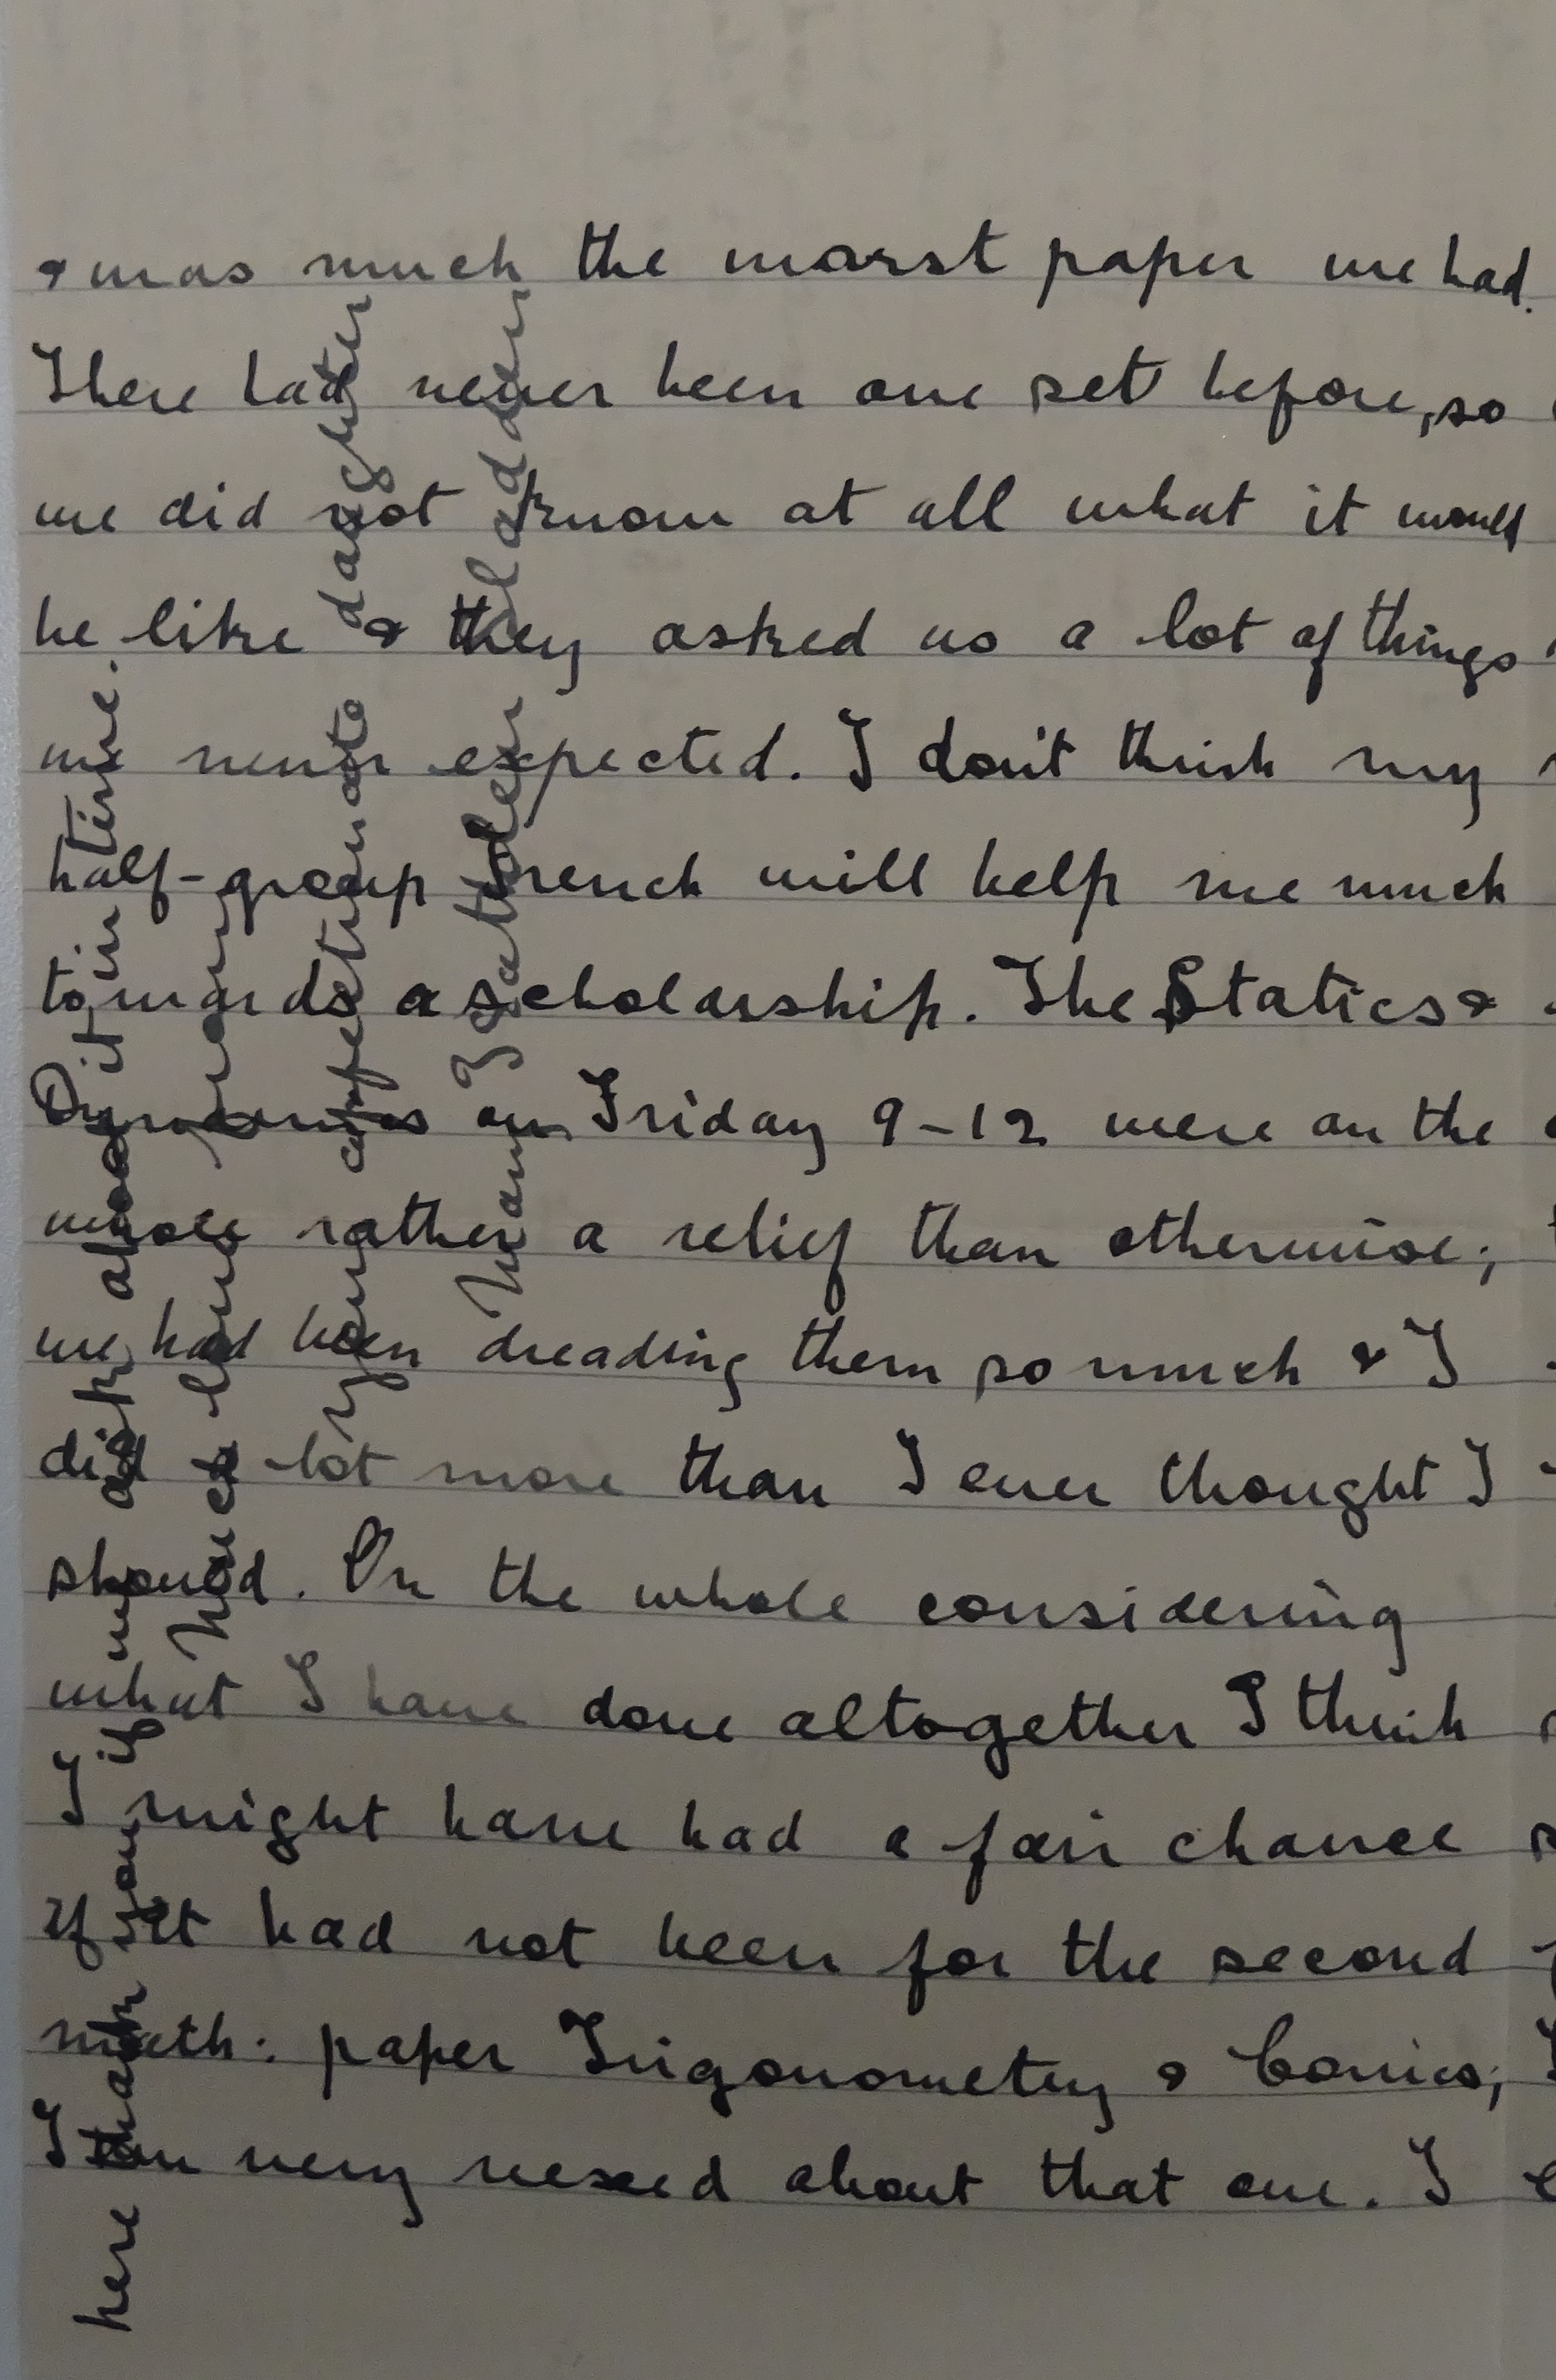 & was much the worst paper we had.
There had never been one set before, so
we did not know at all what it would
be like & they asked us a lot of things
we never expected. I don't think my
half-group French will help me much
towards a scholarship. The Statics &
Dynamics on Friday 9-12 were on the
whole rather a relief than otherwise;
we had been dreading them so much & I
did a lot more than I ever thought I
should. On the whole considering
what I have done altogether I think
I might have had a fair chance
if it had not been for the second
math: paper Trigonometry & Conics;
I am very vexed about that one. I
here thank you if we ask about it in time.
Much love from
your affectionate daughter